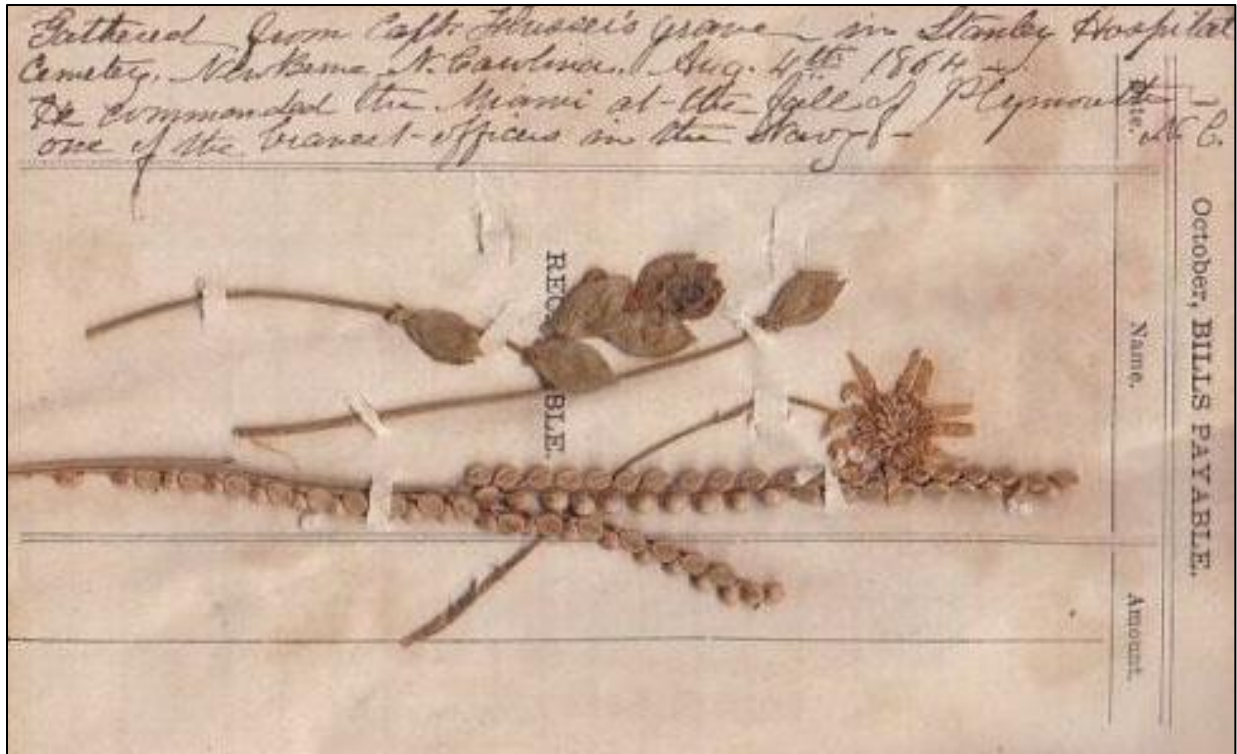 Gathered from Capt. Flusser's grave in Stanley Hospital
Cemetery. Newberne N. Carolina. Aug. 4th 1864 -
He commanded the Miami at the fall of Plymouth - N.C.
one of the bravest officers in the Navy -
October, BILLS PAYABLE.
Name.
Amount.
REC BLE.